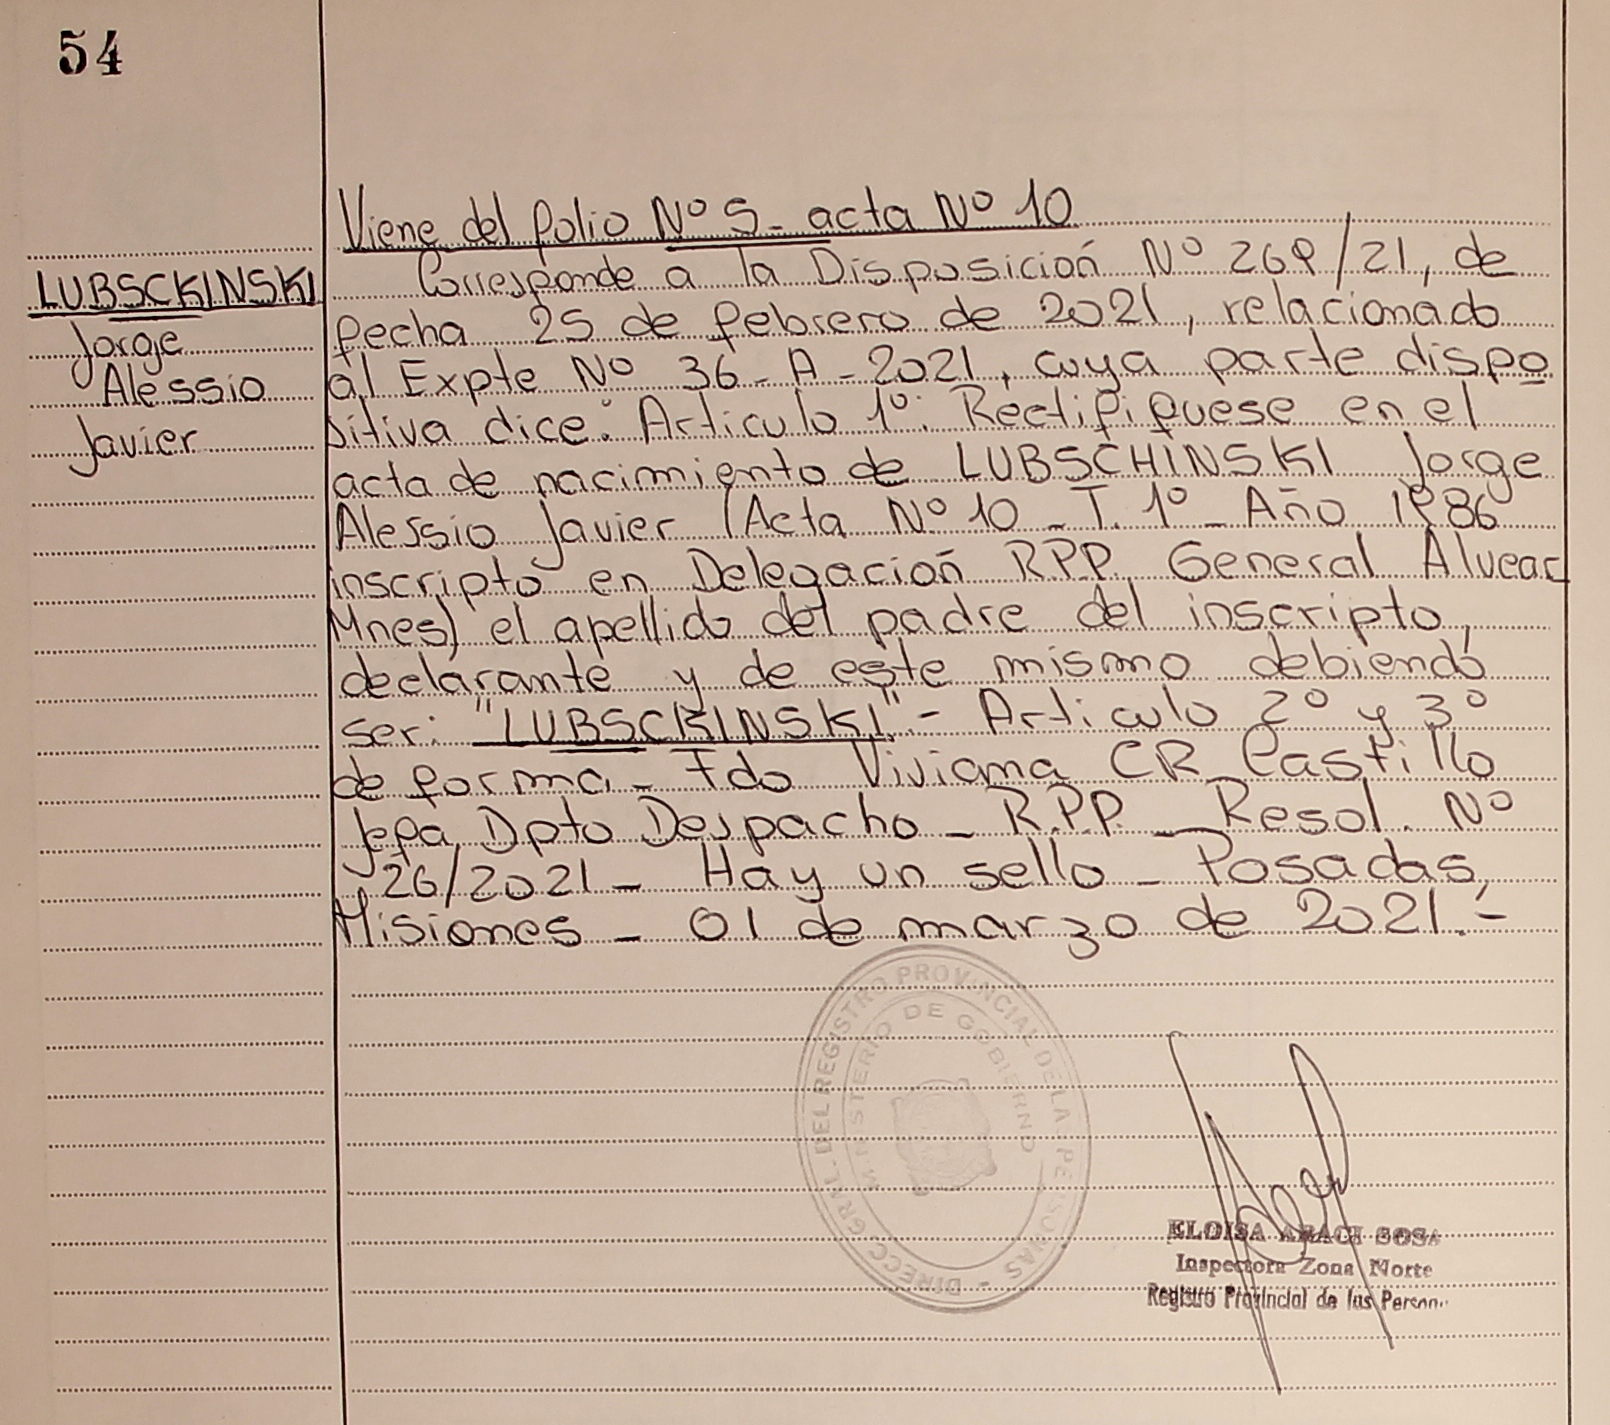 54
Viene del folio Nº 5 - acta Nº 10
LUBSCKINSKI
Jorge
Alessio
Javier
Corresponde a la Disposición Nº 269/21, de
fecha 25 de febrero de 2021, relacionado
al Expte Nº 36 - A - 2021, cuya parte dispo
sitiva dice: Articulo 1º: Rectifiquese en el
acta de nacimiento de LUBSCHINSKI Jorge
Alessio Javier (Acta Nº 10 - T. 1º - Año 1986
inscripto en Delegación R.P.P. General Alvear
Mnes) el apellido del padre del inscripto,
declarante y de este mismo debiendo
ser: "LUBSCKINSKI" - Articulo 2º y 3º
de forma - Fdo Viviana CR Castillo
Jefa Dpto Despacho - R.P.P. - Resol. Nº
26/2021 - Hay un sello - Posadas,
Misiones - 01 de marzo de 2021.-
DIRECC. GRAL. DEL REGISTRO PROVINCIAL DE LAS PERSONAS -
MINISTERIO DE GOBIERNO
ELOISA ARACI SOSA
Inspectora Zona Norte
Registro Provincial de las Person.